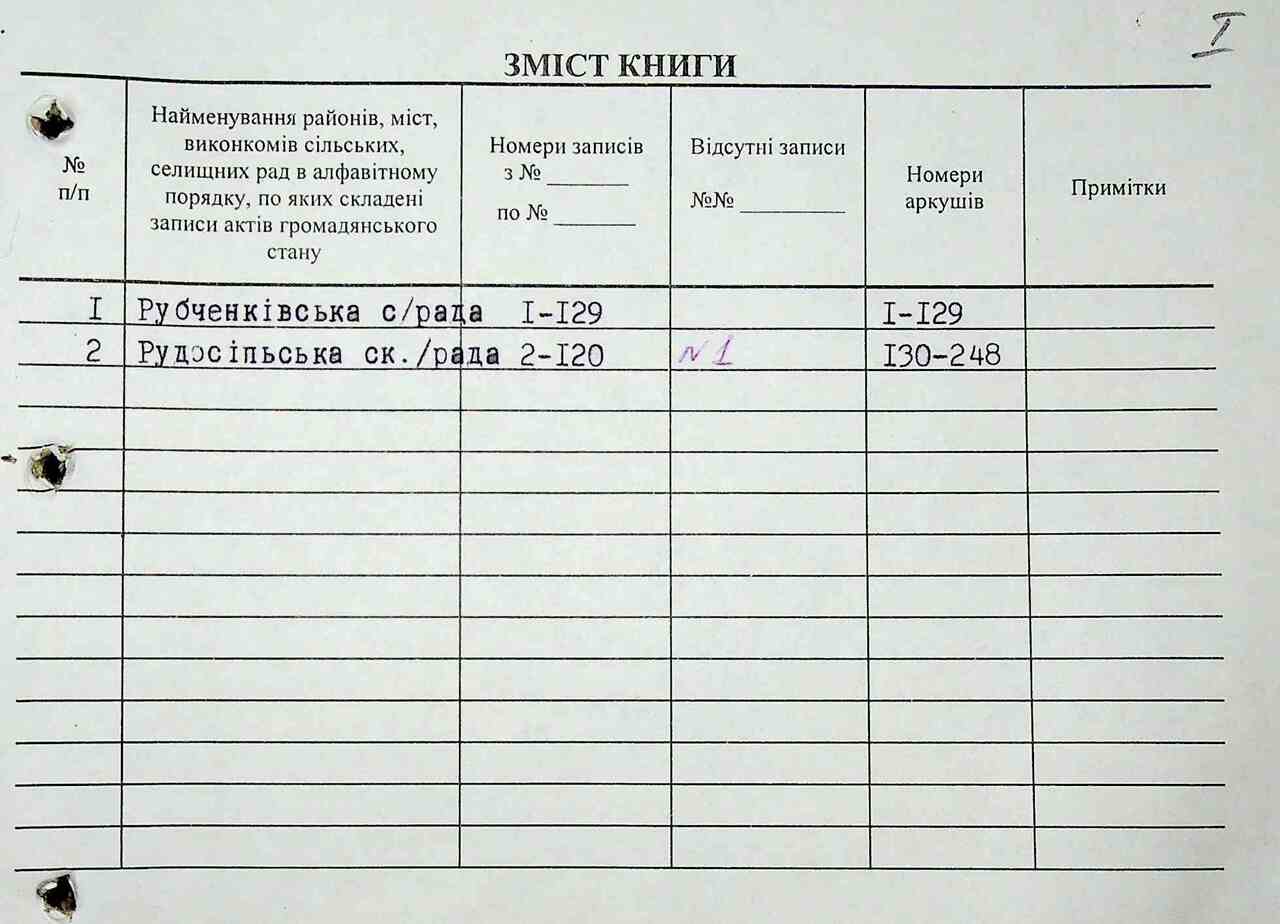 I
ЗМІСТ КНИГИ
№
п/п
Найменування районів, міст,
виконкомів сільських,
селищних рад в алфавітному
порядку, по яких складені
записи актів громадянського
стану
Номери записів
з № ________
по № ________
Відсутні записи
№№ __________
Номери
аркушів
Примітки
I Рубченківська с/рада I-I29 I-I29
2 Рудосільська ск./рада 2-I20 N 1 I30-248